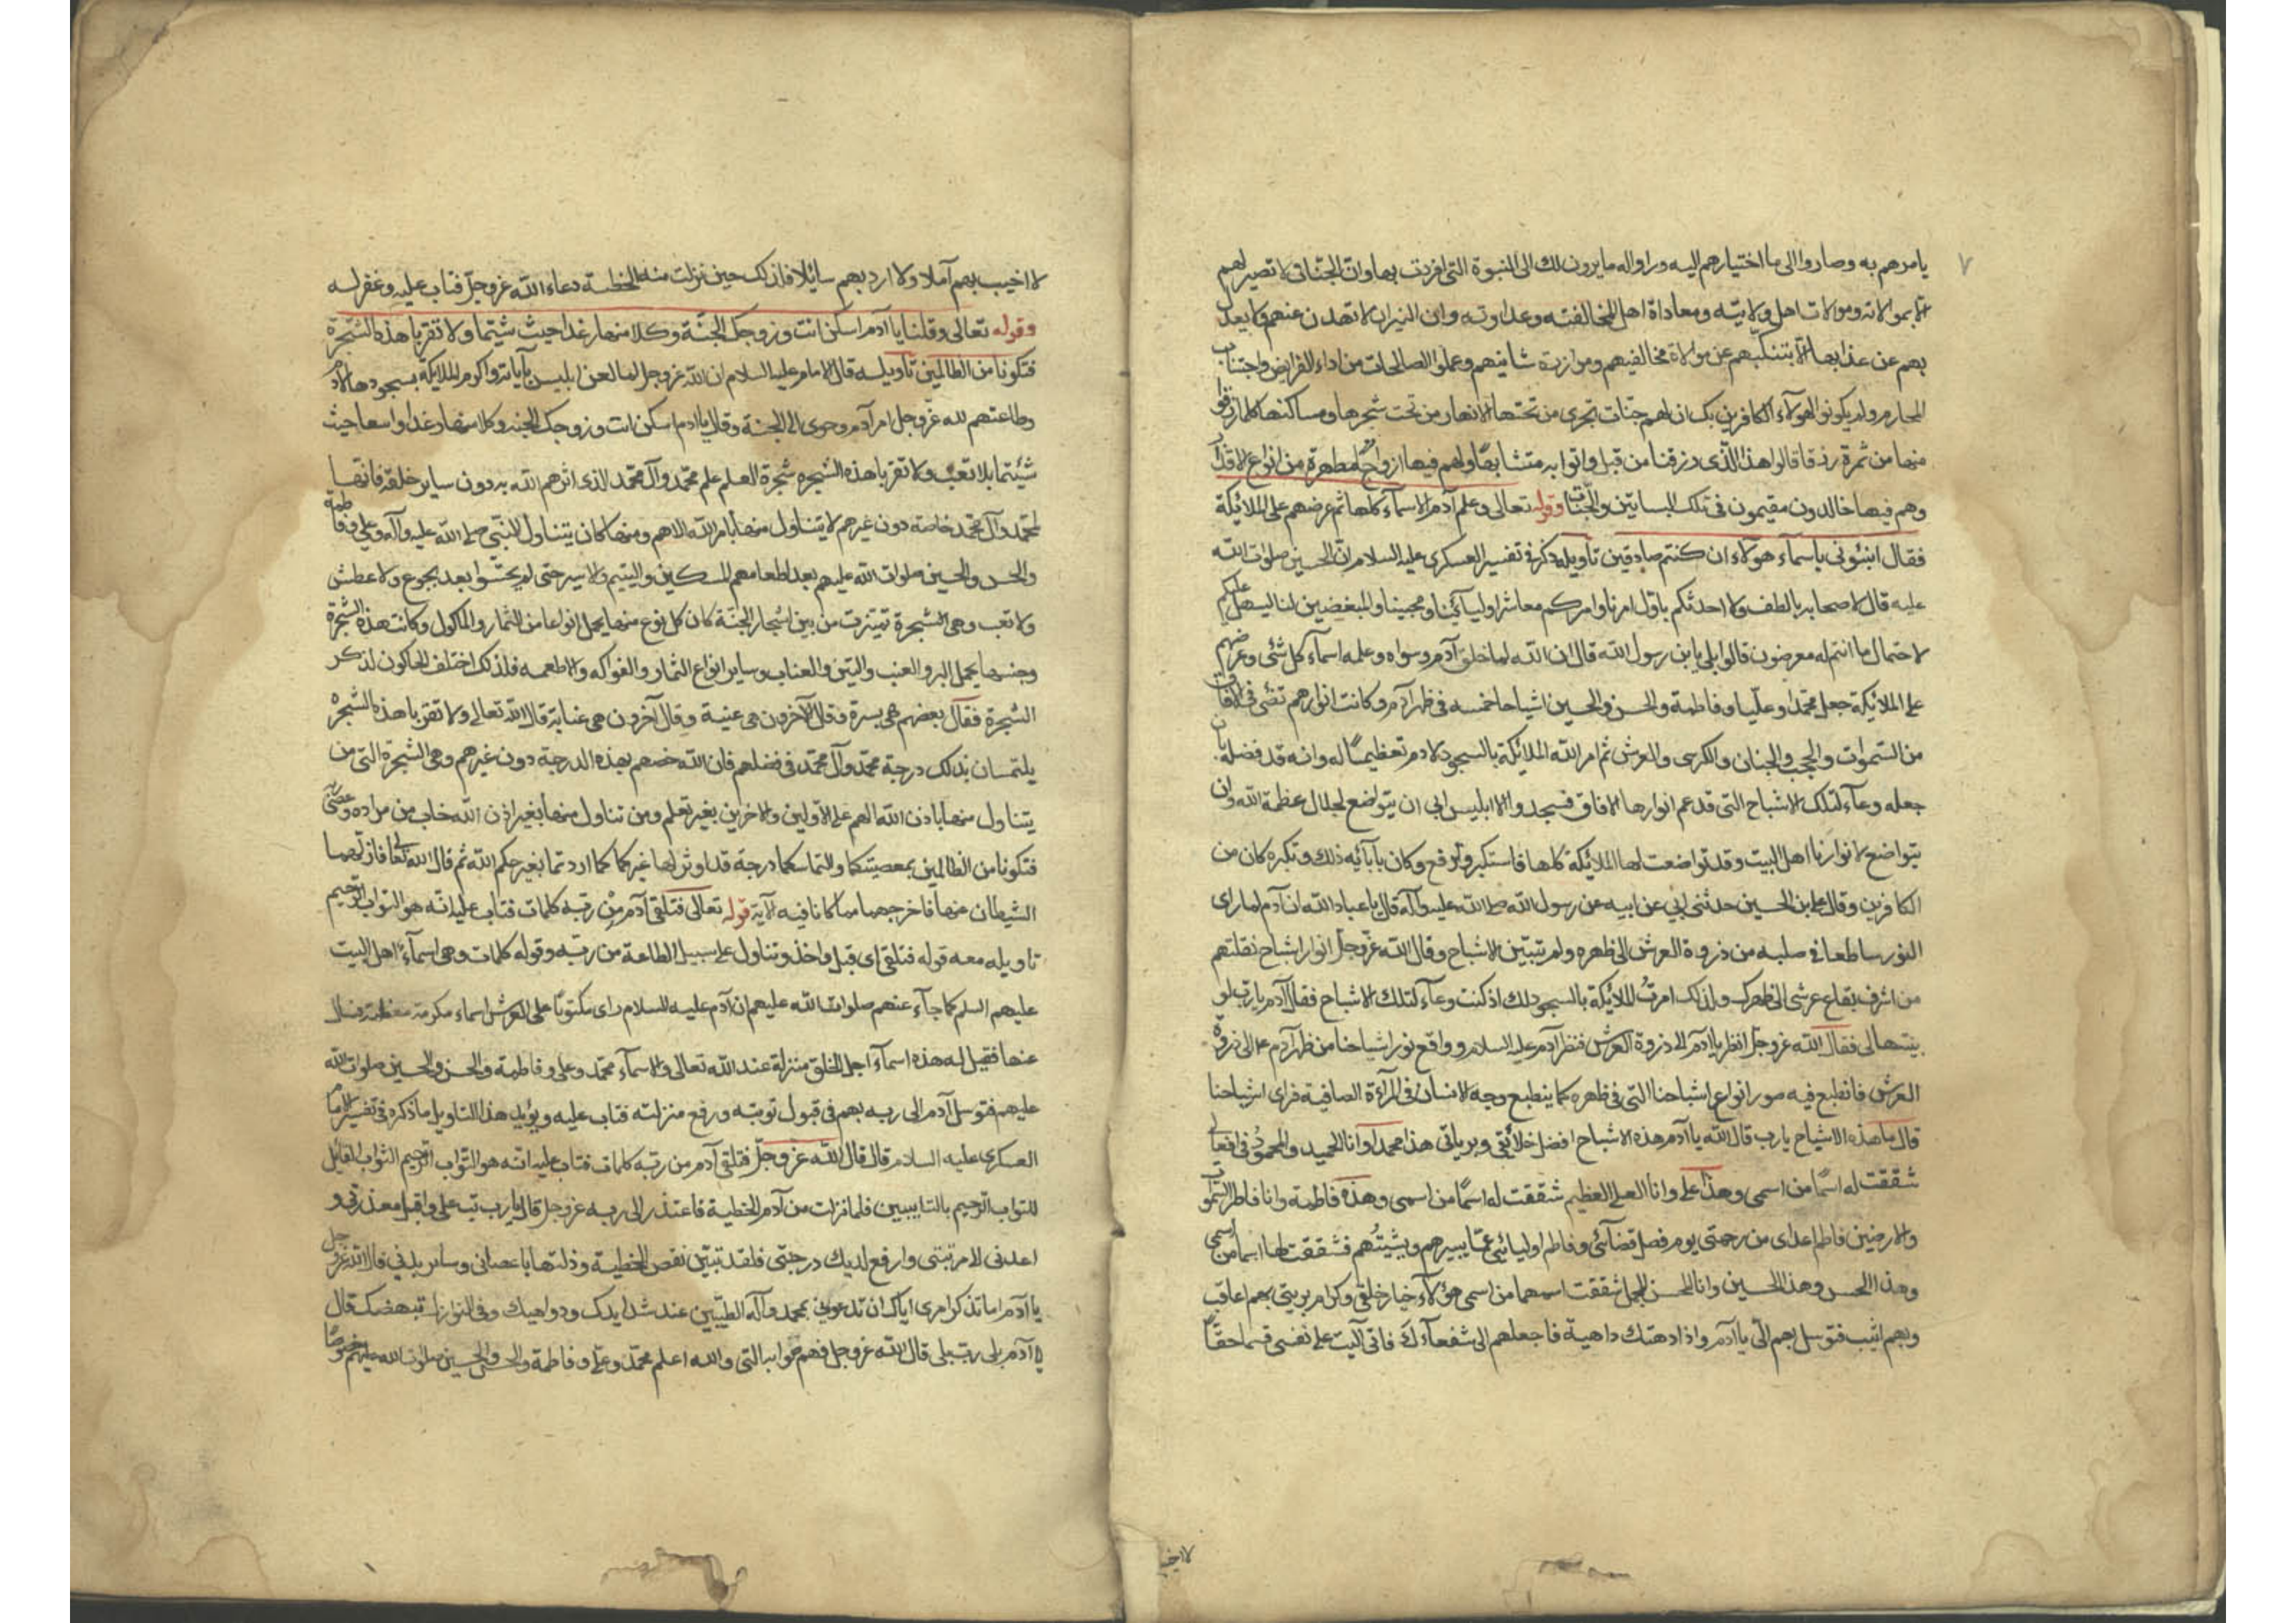 ٧
يامرهم به وصاروا الى ما اختيارهم اليه وراواله ما يرون لك الى النبوة التى افردت بها وان الجنان لا تصير لهم
الا بموالاته وموالات اهل ولايته ومعاداة اهل المخالفته وعداوته وان النيران لا تهدن عنهم ولا يعدل
بهم عن عذابها الا بتنكبهم عن موالاة مخالفيهم وموازرة شانيهم وعملوا الصالحات من اداء الفرايض واجتناب
المحارم ولم يكونوا لهؤلاء الكافرين بك ان لهم جنات تجرى من تحتها الانهار من تحت شجرها ومساكنها كلما رزقوا
منها من ثمرة رزقا قالوا هذا الذى رزقنا من قبل واتوا به متشابها ولهم فيها ازواج مطهرة من انواع الاقذار
وهم فيها خالدون مقيمون فى تلك البساتين والجنان وقوله تعالى وعلم آدم الاسماء كلها ثم عرضهم على الملائكة
فقال انبئونى باسماء هؤلاء ان كنتم صادقين تاويله ذكر فى تفسير العسكرى عليه السلام ان الحسين صلوات الله
عليه قال لاصحابه بالطف ولا احدثكم باول امرنا وامركم معاشر اوليائنا ومحبينا والمبغضين لنا ليسهل عليكم
لاحتمال ما انتم له معرضون قالوا بلى يا بن رسول الله قال ان الله لما خلق آدم وسواه وعلمه اسماء كل شئى وعرضهم
على الملائكة جعل محمدا وعليا وفاطمة والحسن والحسين اشباحا خمسه فى ظهر آدم وكانت انوارهم تضئى فى الافاق
من السموات والحجب والجنان والكرسى والعرش ثم امر الله الملائكة بالسجود لادم تعظيما له وانه قد فضله بان
جعله وعاء لتلك الاشباح التى قد عم انوارها الافاق فسجدوا الا ابليس ابى ان يتواضع لجلال عظمة الله وان
يتواضع لانوارنا اهل البيت وقد تواضعت لها الملائكة كلها فاستكبر وترفع وكان بابائه ذلك وتكبره كان من
الكافرين وقال على بن الحسين حدثنى ابى عن ابيه عن رسول الله صلى الله عليه وآله قال يا عباد الله ان آدم لما راى
النور ساطعا فى صلبه من ذروة العرش الى ظهره ولم يتبين الاشباح وقال الله عز وجل انوار اشباح نقلتهم
من اشرف بقاع عرشى الى ظهرك ولذلك امرت الملائكة بالسجود لك اذ كنت وعاء لتلك الاشباح فقال آدم يا رب لو
بينتها لى فقال الله عز وجل انظر يا آدم الى ذروة العرش فنظر آدم عليه السلام وواقع نور اشباحنا من ظهر آدم على ذروة
العرش فانطبع فيه صور انواع اشباحنا التى فى ظهره كما ينطبع وجه الانسان فى المرآءة الصافية فراى اشباحنا
قال ما هذه الاشباح يا رب قال الله يا آدم هذه الاشباح افضل خلائقى وبرياتى هذا محمد وانا الحميد والمحمود فى افعالى
شققت له اسما من اسمى وهذا على وانا العلى العظيم شققت له اسما من اسمى وهذه فاطمة وانا فاطر السموات
والارضين فاطم اعداى من رحمتى يوم فصل قضائى وفاطم اوليائى عما يبيرهم ويشينهم فشققت لها اسما من اسمى
وهذا الحسن وهذا الحسين وانا المحسن المجمل شققت اسمهما من اسمى هؤلاء خيار خلقى وكرام بريتى بهم اعاقب
وبهم اثيب فتوسل بهم الى يا آدم واذا دهتك داهية فاجعلهم الى شفعاءك فانى آليت على نفسى قسما حقا
لا اخيب
لا اخيب بهم آملا ولا ارد بهم سائلا فلذلك حين نزلت منه الخطيئة دعاء الله عز وجل فتاب عليه وغفر له
وقوله تعالى وقلنا يا آدم اسكن انت وزوجك الجنة وكلا منها رغدا حيث شيتما ولا تقربا هذه الشجرة
فتكونا من الظالمين تاويله قال الامام عليه السلام ان الله عز وجل لما لعن ابليس بابائه واكرم الملايكة بسجودها لادم
وطاعتهم لله عز وجل امر آدم وحوى الى الجنة وقال يا ادم اسكن انت وزوجك الجنه وكلا منها رغدا واسعا حيث
شئتما بلا تعب ولا تقربا هذه الشجره شجرة العلم علم محمد وآل محمد الذى اثرهم الله به دون ساير خلقه فانها
لمحمد وآل محمد خاصة دون غيرهم لا يتناول منها بامر الله الا هم ومنها كان يتناول النبى صلى الله عليه وآله وعلى وفاطمة
والحسن والحسين صلوات الله عليهم بعد اطعامهم المسكين واليتيم والاسير حتى لم يحسوا بعد بجوع ولا عطش
ولا تعب وهى الشجرة تميزت من بين اشجار الجنة كان كل نوع منها يحمل انواعا من الثمار والماكول وكانت هذه الشجرة
وجنسها يحمل البر والعنب والتين والعناب وساير انواع الثمار والفواكه والاطعمه فلذلك اختلف الحاكون لذكر
الشجرة فقال بعضهم هى بسرة وقال الآخرون هى عنبة وقال آخرون هى عنابة قال الله تعالى ولا تقربا هذه الشجره
يلتمسان بذلك درجة محمد وآل محمد فى فضلهم فان الله خصهم بهذه الدرجة دون غيرهم وهى الشجرة التى من
يتناول منها باذن الله الهم على الاولين والاخرين بغير تعلم ومن تناول منها بغير اذن الله خاب من مراده وعصى ربه
فتكونا من الظالمين بمعصيتكما والتماسكما درجة قد اوثر لها غيركما كما اردتما بغير حكم الله ثم قال الله تعالى فازلهما
الشيطان عنها فاخرجهما مما كانا فيه الآية قوله تعالى فتلقى آدم من ربه كلمات فتاب عليه انه هو التواب الرحيم
تاويله معه قوله فتلقى اى قبل واخذ وتناول على سبيل الطاعة من ربه وقوله كلمات وهى اسماء اهل البيت
عليهم السلم كما جاء عنهم صلوات الله عليهم ان آدم عليه السلام راى مكتوبا على العرش اسماء مكرمة معظمة فسال
عنها فقيل له هذه اسماء اجل الخلق منزلة عند الله تعالى والاسماء محمد وعلى وفاطمة والحسن والحسين صلوات الله
عليهم فتوسل آدم الى ربه بهم فى قبول توبته ورفع منزلته فتاب عليه ويؤيد هذا التاويل ما ذكره فى تفسير الامام
العسكرى عليه السلام قال قال الله عز وجل فتلقى آدم من ربه كلمات فتاب عليه انه هو التواب الرحيم التواب القابل
للتواب الرحيم بالتايبين فلما نزلت من آدم الخطيئة فاعتذر الى ربه عز وجل قال يا رب تب على واقبل معذرتى و
اعدنى لا مرتبتى وارفع لديك درجتى فلقد تبين نقص الخطيئة وذلتها باعصانى وساير بدنى قال الله عز وجل
يا آدم اما تذكر امرى اياك ان تدعونى بمحمد وآله الطيبين عند شدايدك ودواهيك وفى النوازل تبهضك قال
لا آدم بلى رب بلى قال الله عز وجل فهم والله اعلم محمد وعلى وفاطمة والحسن والحسين صلوات الله عليهم خصوصا